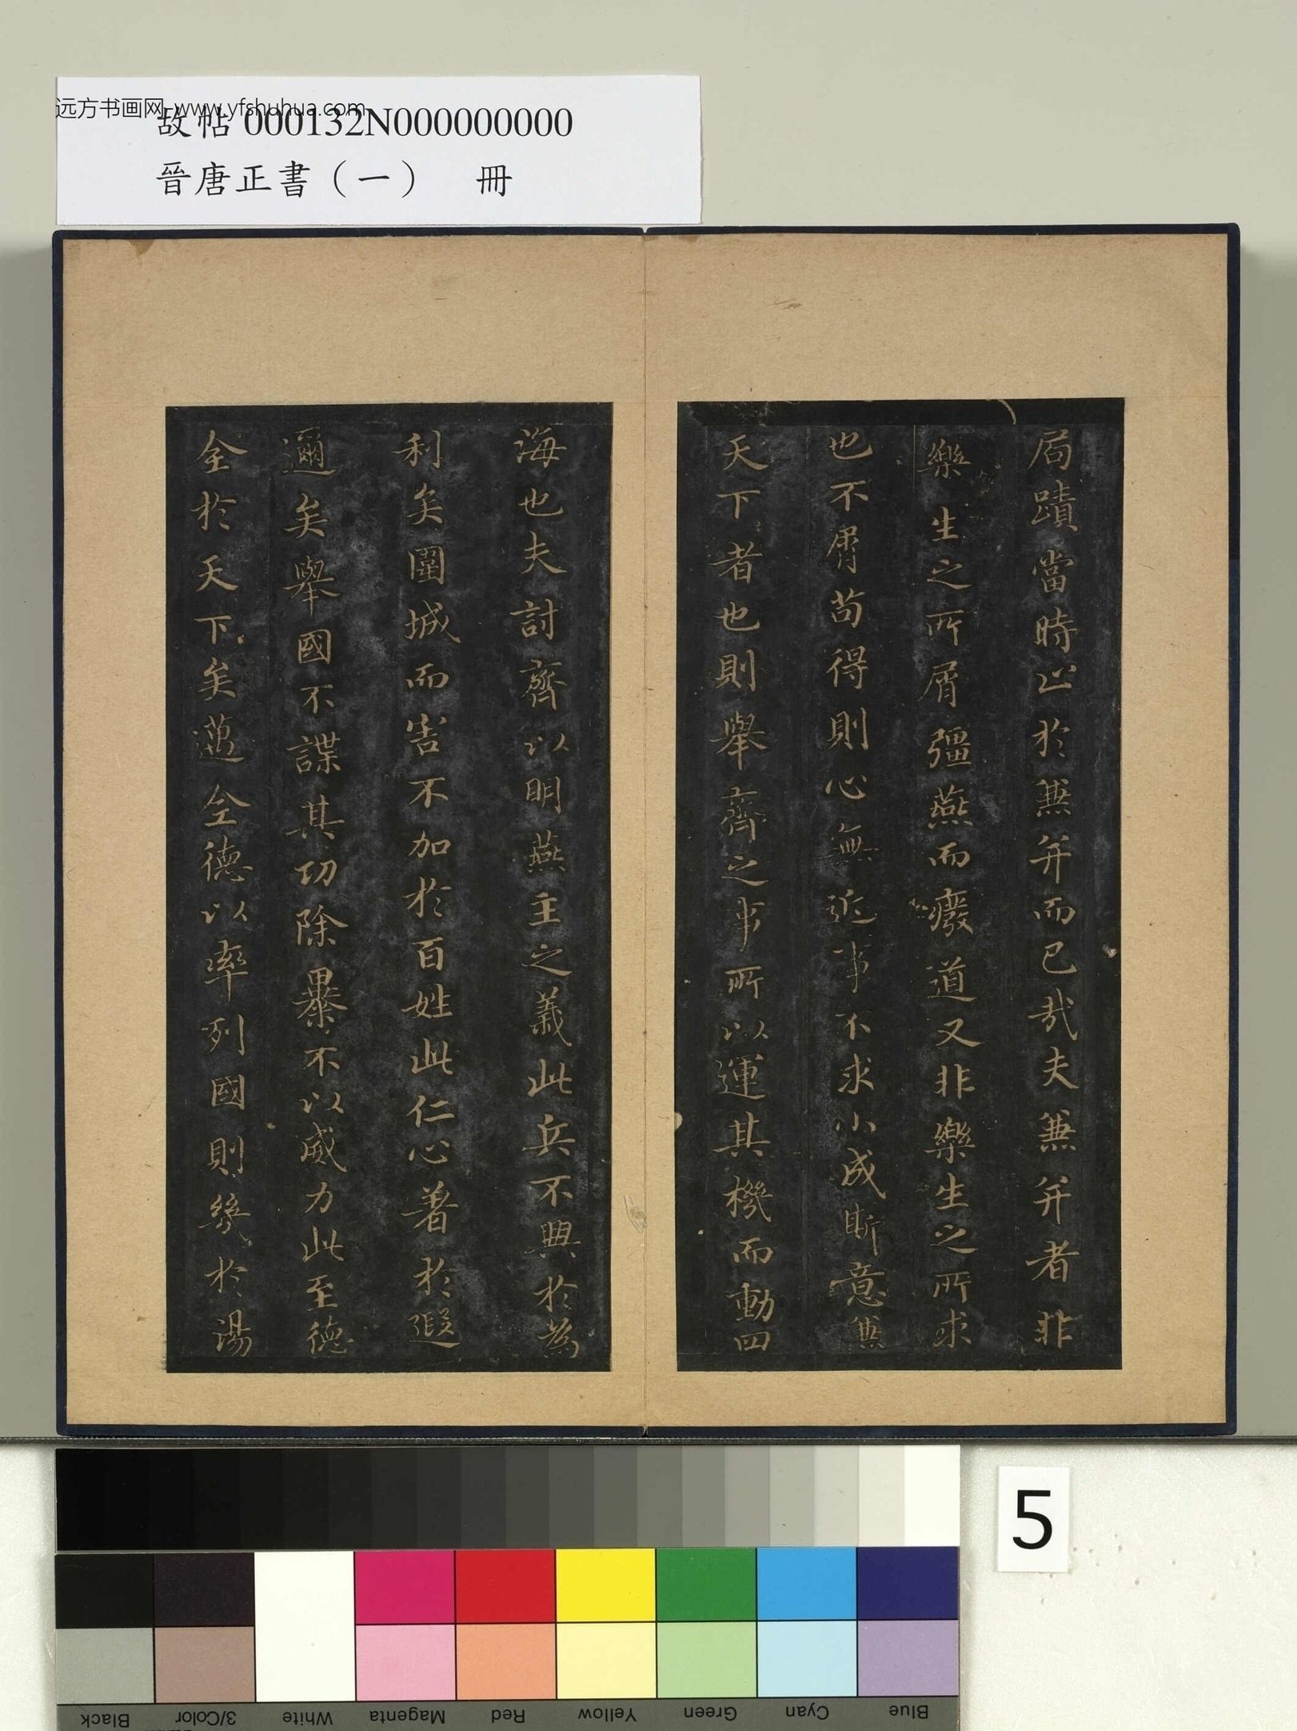 远方书画网 www.yfshuhua.com
故帖 000132N000000000
晉唐正書（一） 冊
局蹟當時止於兼并而已哉夫兼并者非
樂生之所屑彊燕而癈道又非樂生之所求
也不屑苟得則心無近事不求小成斯意兼
天下者也則舉齊之事所以運其機而動四
海也夫討齊以明燕主之義此兵不興於為
利矣圍城而害不加於百姓此仁心著於遐
邇矣舉國不謀其功除暴不以威力此至德
全於天下矣邁全德以率列國則幾於湯
5
Black
3/Color
White
Magenta
Red
Yellow
Green
Cyan
Blue